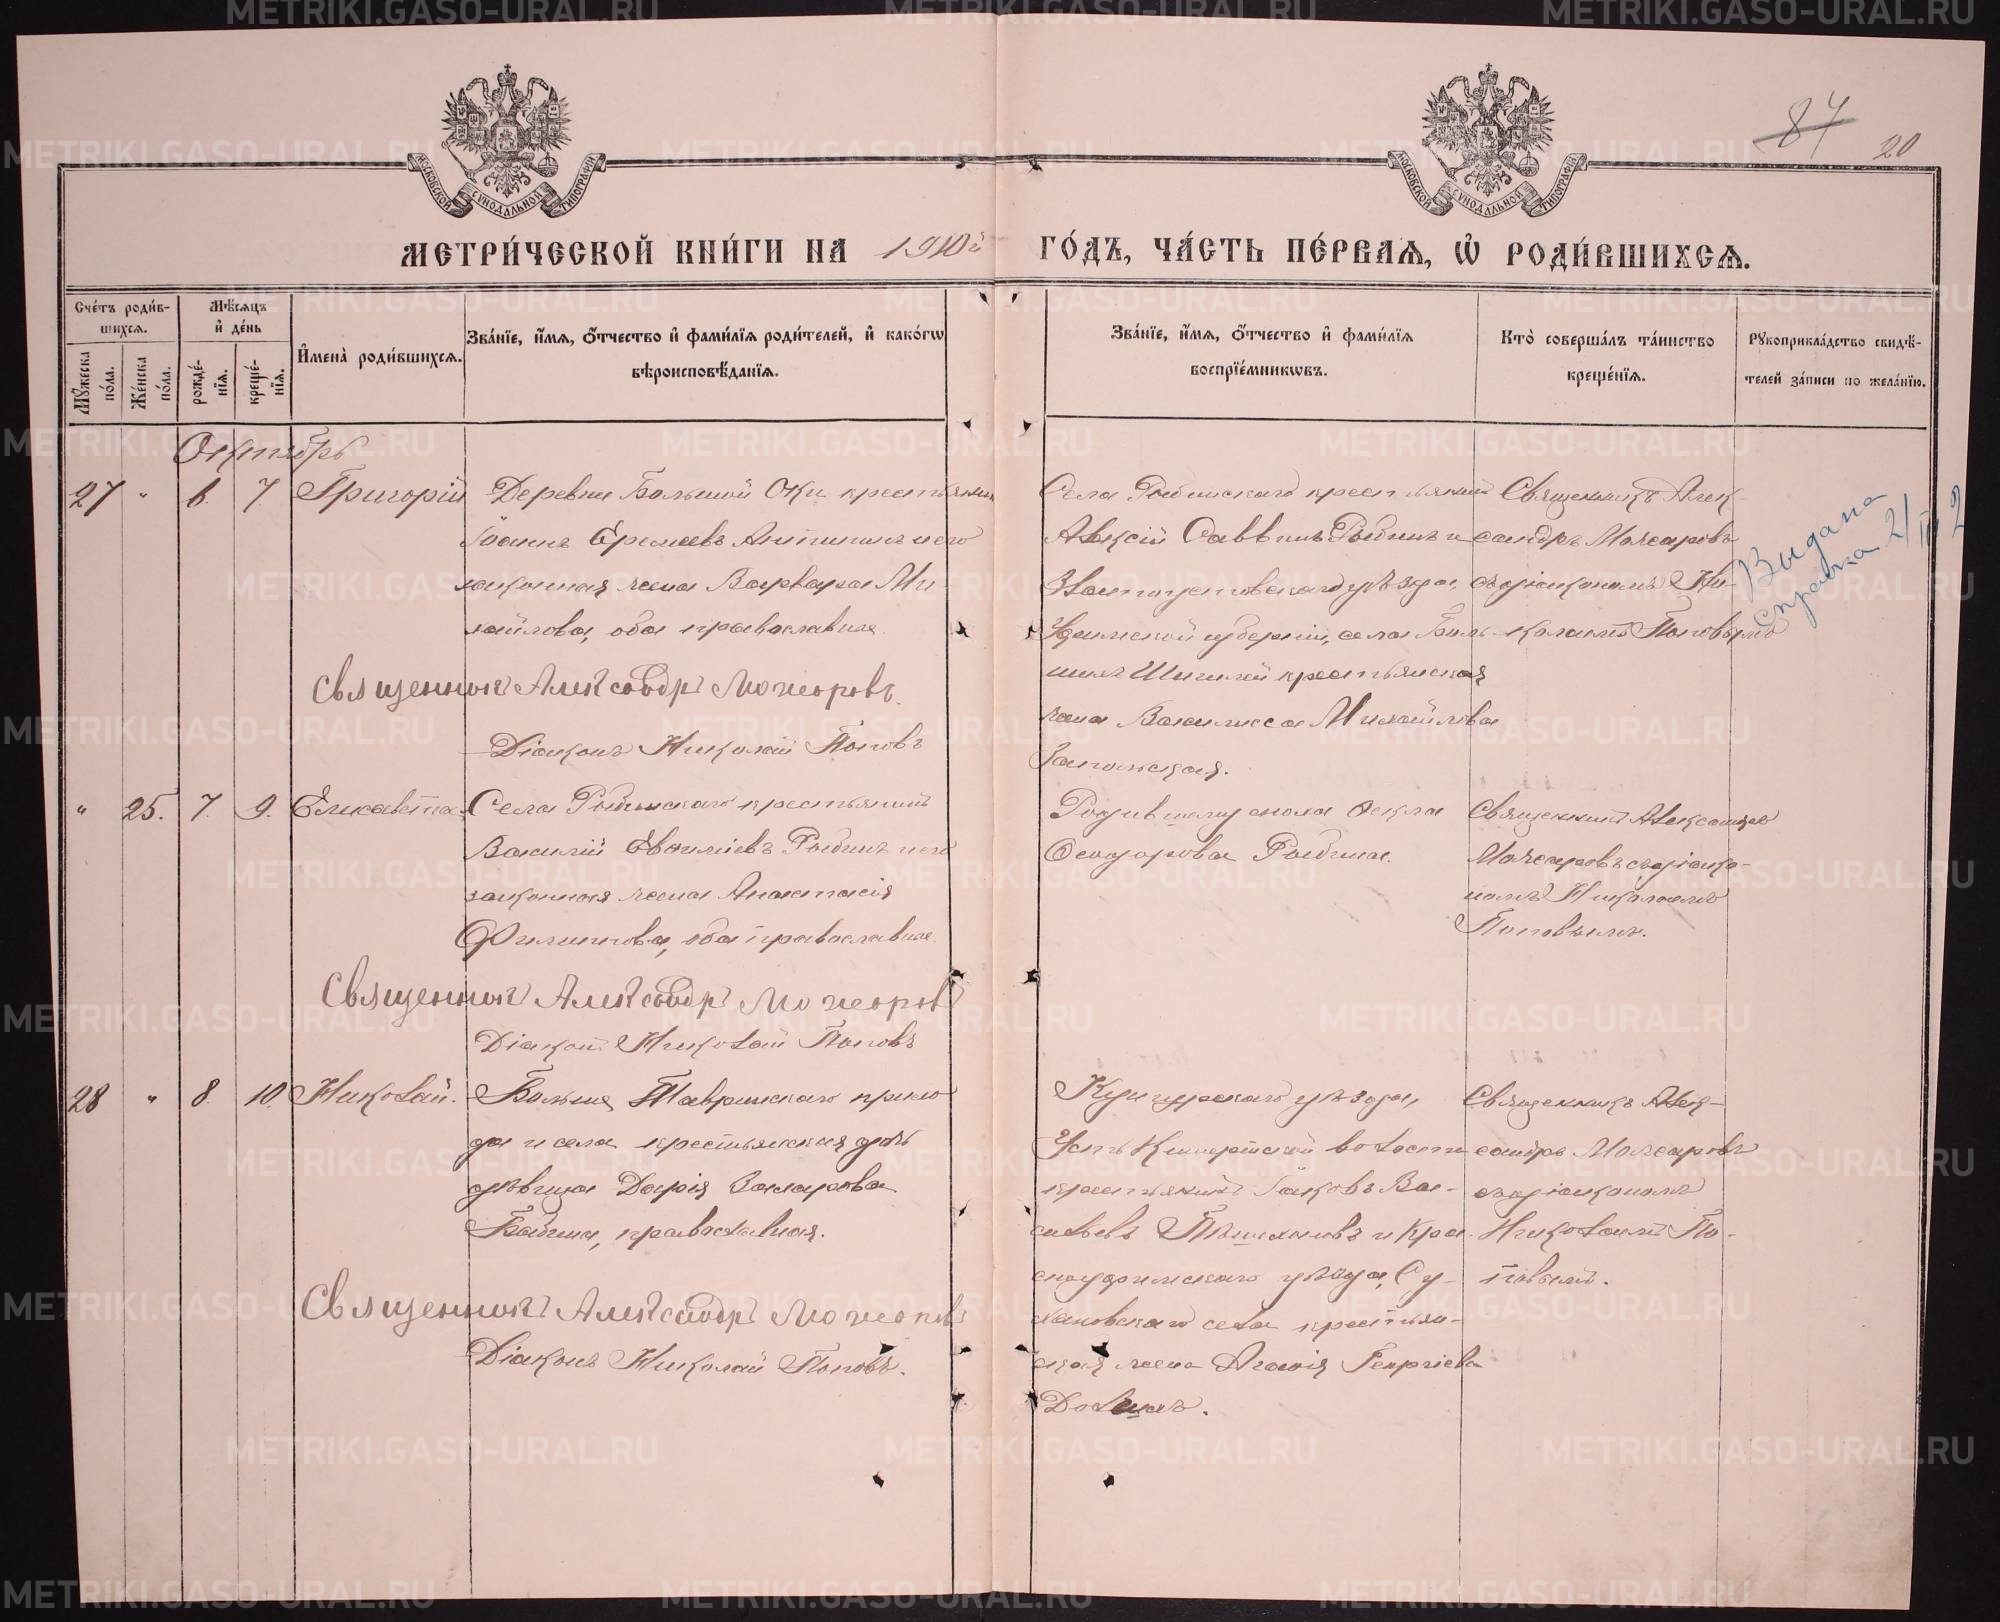 87 20
МОСКОВСКОЙ СѴНОДАЛЬНОЙ ТИПОГРАФІИ
МОСКОВСКОЙ СѴНОДАЛЬНОЙ ТИПОГРАФІИ
МЕТРИ́ЧЕСКОЙ КНИ́ГИ НА 1910й ГО́ДЪ, ЧА́СТЬ ПЕ́РВАѦ, Ѡ҆ РОДИ́ВШИХСѦ.
Сче́тъ роди́в-
шихсѧ.
Мꙋ́жеска по́ла.
Же́нска по́ла.
Мѣ́сѧцъ и҆ де́нь
рожде́-
нїѧ.
креще́-
нїѧ.
И҆мена̀ роди́вшихсѧ.
Зва́нїе, и҆́мѧ, ѻ҆́тчество и҆ фами́лїѧ роди́телей, и҆ како́гѡ
вѣроисповѣ́данїѧ.
Зва́нїе, и҆́мѧ, ѻ҆́тчество и҆ фами́лїѧ
воспрїе́мникѡвъ.
Кто̀ соверша́лъ та́инство
креще́нїѧ.
Рꙋкоприкла́дство свидѣ́-
телей за́писи по жела́нїю.
Октябрь
27 " 6. 7. Григорій
Деревни Большой Оки крестьянин
Іоаннъ Еремеевъ Антипинъ и его
законная жена Варвара Ми-
хайлова, оба православные.
Священник Александр Мочаров.
Діаконъ Николай Поповъ
Села крестьянин
Алексій Саввинъ и
Златоустовского уѣзда,
Уфимской губерніи, села Боль-
ших крестьянская
жена Василисса Михайлова
Священникъ Алек-
сандръ Мочаровъ
съ діакономъ Ни-
колаемъ Поповымъ
Выдана
справка 2/
" 25. 7. 9. Елисавета
Села крестьянинъ
Василій Евѳиміевъ и его
законная жена Анастасія
Филиппова, оба православные.
Священник Александр Мочаров
Діаконъ Николай Поповъ
Ѳекла
Ѳеодорова
Священникъ Александръ
Мочаровъ съ діако-
номъ Николаемъ
Поповымъ.
28 " 8. 10. Николай.
Больше Тавринского прихо
да и села крестьянская дочь
дѣвица Дарія Захарова
православная.
Священник Александр Мочаров
Діаконъ Николай Поповъ.
Кунгурского уѣзда,
Усть Кишертской волости
крестьянинъ Іаковъ Ва-
сильевъ и Кра-
сноуфимского уѣзда, Су-
хановского села крестьян-
ская жена Агафія Георгіева
Священникъ Алек-
сандръ Мочаровъ
съ діакономъ
Николаемъ По-
повымъ.
METRIKI.GASO-URAL.RU